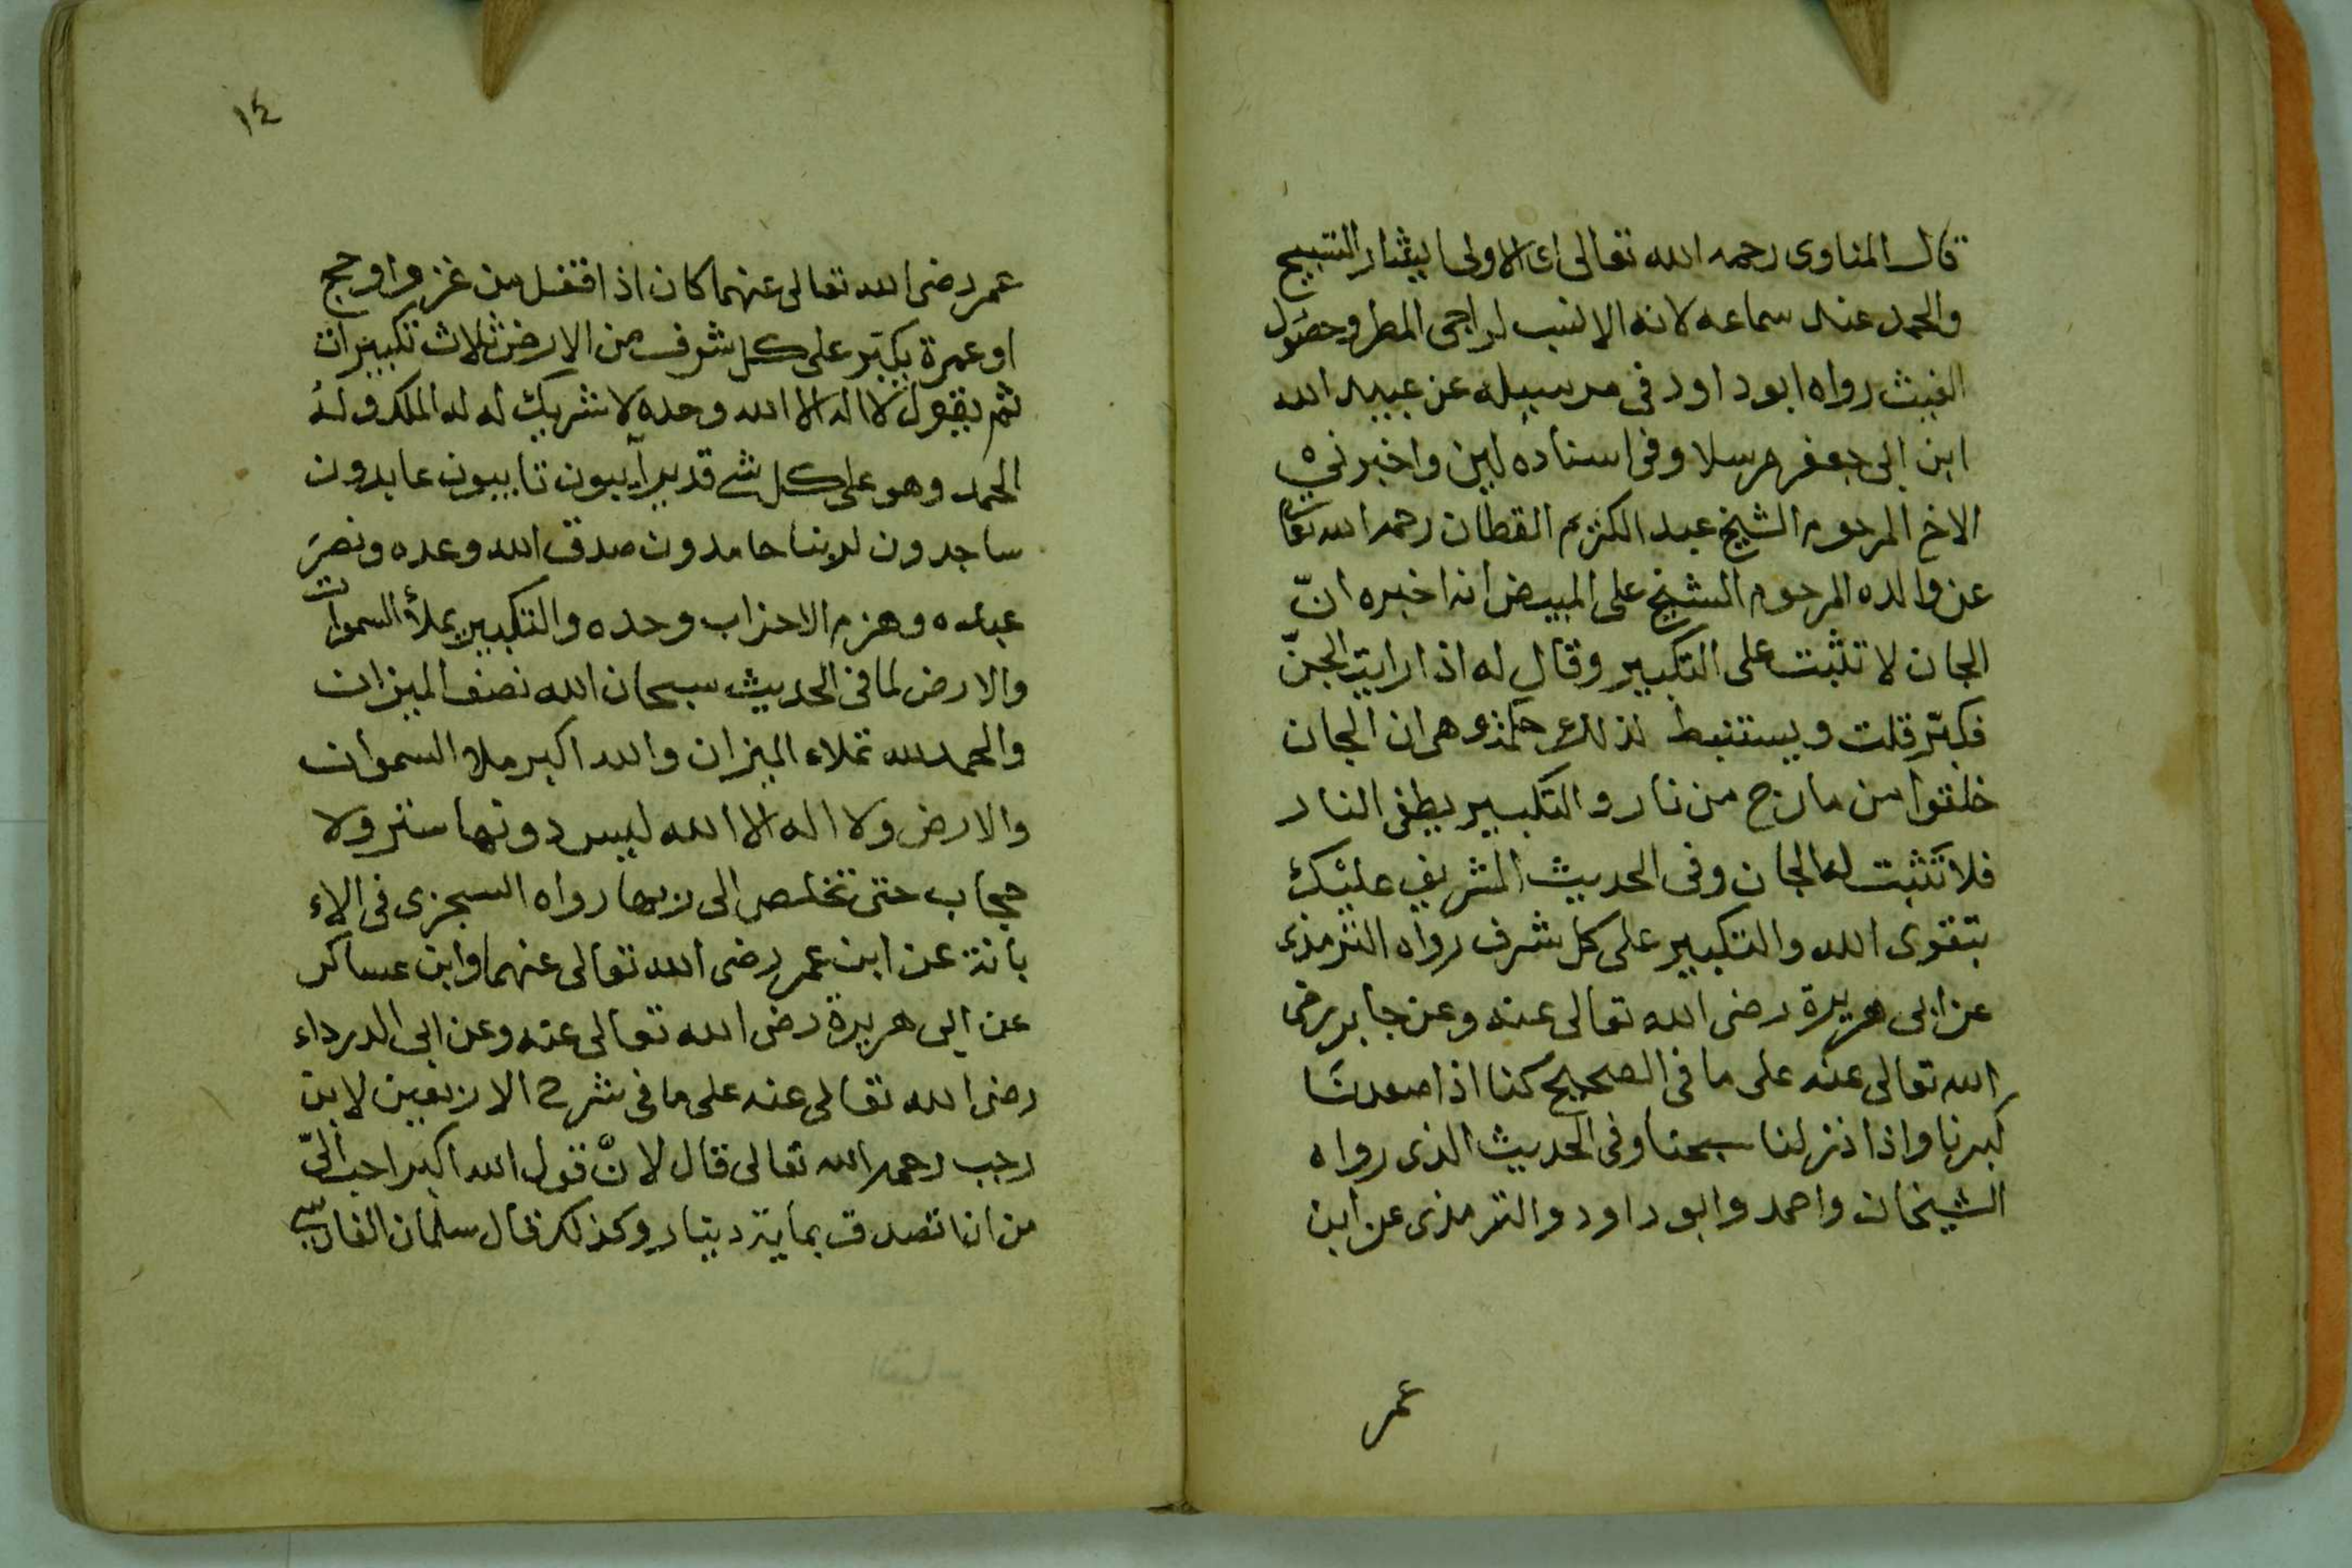 قال المناوى رحمه الله تعالى اى الاولى ايثار التسبيح
والحمد عند سماعه لانه الانسب لراجى المطر وحصول
الغيث رواه ابوداود فى مرسيله عن عبيد الله
ابن ابى جعفر مرسلا وفى اسناده لين واخبرنى
الاخ المرحوم الشيخ عبد الكريم القطان رحمه الله تعالى
عن والده المرحوم الشيخ على المبيض انه اخبره انّ
الجان لا تثبت على التكبير وقال له اذا رايت الجنّ
فكبّر قلت ويستنبط لذلك حكمة وهى ان الجان
خلقوا من مارج من نار والتكبير يطفى النار
فلا تثبت له الجان وفى الحديث الشريف عليْكَ
بتقوى الله والتكبير على كل شرف رواه الترمذى
عن ابى هريرة رضى الله تعالى عنه وعن جابر رضى
الله تعالى عنه على ما فى الصحيح كنا اذا صعدنا
كبرنا واذا نزلنا سبحنا وفى الحديث الذى رواه
الشيخان واحمد وابو داود والترمذى عن ابن
عمر
١٤
عمر رضى الله تعالى عنهما كان اذا قفل من غزو او حج
او عمرة يكبّر على كل شرف من الارض ثلاث تكبيرات
ثم يقول لا اله الا الله وحده لا شريك له له الملك وله
الحمد وهو على كل شى قدير آيبون تايبون عابدون
ساجدون لربنا حامدون صدق الله وعده ونصر
عبده وهزم الاحزاب وحده والتكبير يملأ السموات
والارض لما فى الحديث سبحان الله نصف الميزان
والحمد لله تملاء الميزان والله اكبر ملاء السموات
والارض ولا اله الا الله ليس دونها ستر ولا
حجاب حتى تخلص الى ربها رواه السجزى فى الاء
بانة عن ابن عمر رضى الله تعالى عنهما وابن عساكر
عن ابى هريرة رضى الله تعالى عنه وعن ابى الدرداء
رضى الله تعالى عنه على ما فى شرح الاربعين لابن
رجب رحمه الله تعالى قال لانْ قول الله اكبر احب الىّ
من ان اتصدق بماية دينار وكذلك قال سلمان الفارسى